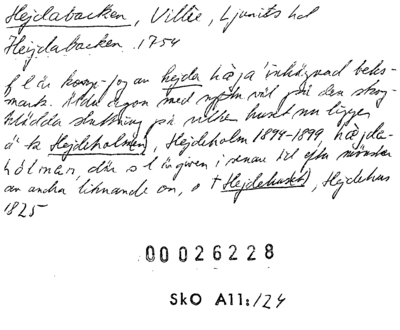 Hejdabacken, Villie, Ljunits hd
Hejdabacken 1754
f l är komp. av hejda häja inhägnad betes-
mark. Äldre med på den skog-
klädda sluttning på vilken huset nu ligger
ä k Hejdeholmen, Hejdeholm 1894-1899, häjda-
hólman, där s l är given i senare tid efter mönster
av andra liknande on, o † Hejdehuset, Hejdehus
1825
00026228
SkO A11:124